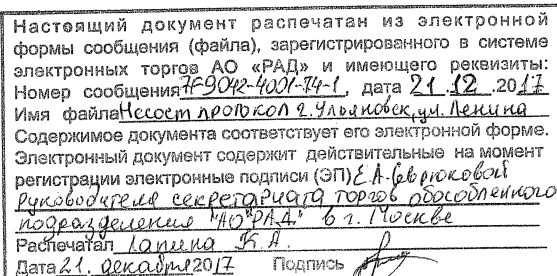 Настоящий документ распечатан из электронной
формы сообщения (файла), зарегистрированного в системе
электронных торгов АО «РАД» и имеющего реквизиты:
Номер сообщения 7F9042-4001-74-1, дата 21.12.2017
Имя файла Несост протокол г. Ульяновск, ул. Ленина
Содержимое документа соответствует его электронной форме.
Электронный документ содержит действительные на момент
регистрации электронные подписи (ЭП) Е.А.
Руководителя секретариата торгов обособленного
подразделения "АО "РАД" в г. Москве
Распечатал Лапина К.А.
Дата 21. декабря 2017 Подпись